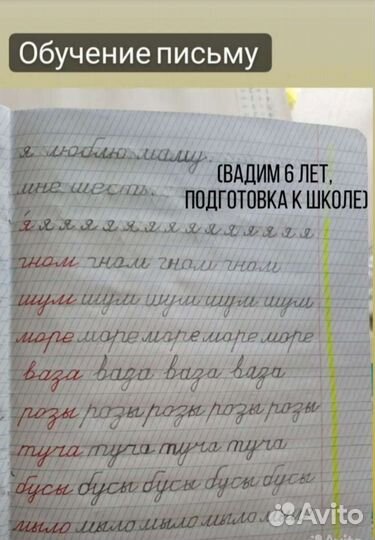 Обучение письму
я люблю маму.
(ВАДИМ 6 ЛЕТ,
ПОДГОТОВКА К ШКОЛЕ)
мне шесть.
я я я я я я я я я я я я я я я я
гном гном гном гном
шум шум шум шум шум
море море море море море
ваза ваза ваза ваза
розы розы розы розы розы
туча туча туча туча
бусы бусы бусы бусы бусы
мыло мыло мыло мыло
Avito